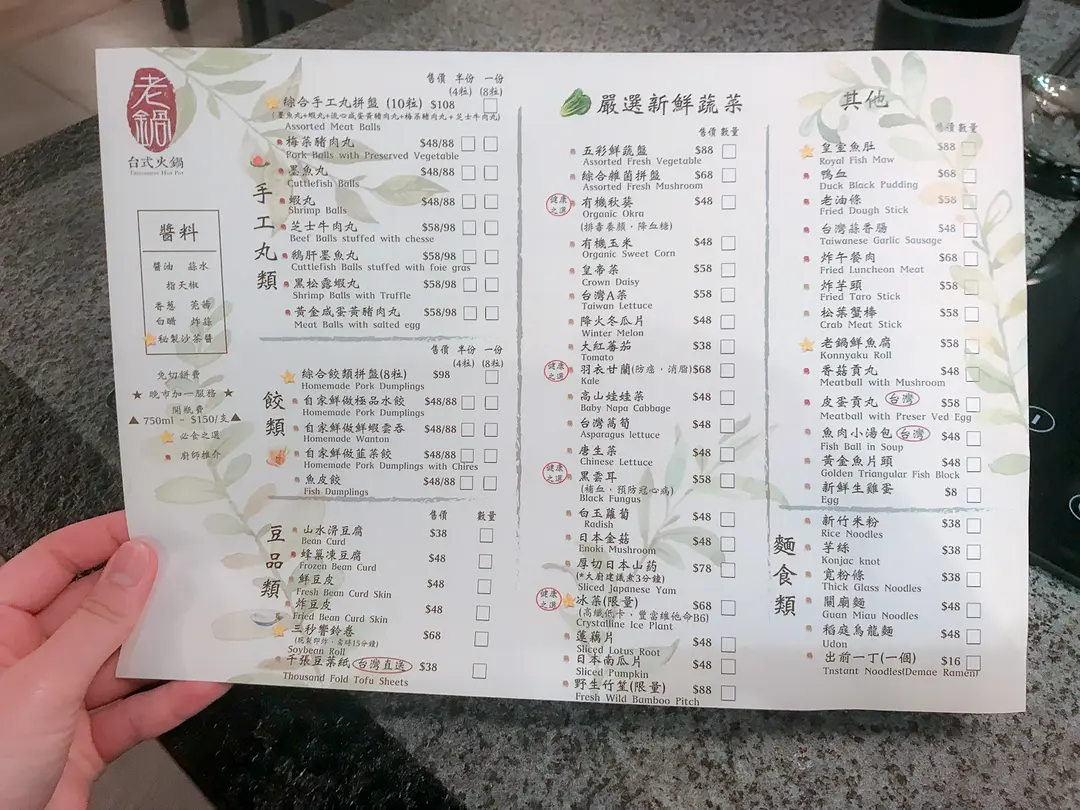 老鍋
台式火鍋
Taiwanese Hot Pot
醬料
醬油 蒜水
指天椒
香蔥 芫茜
白醋 炸蒜
秘製沙茶醬
免切餅費
★ 晚市加一服務 ★
開瓶費
▲ 750ml - $150/支 ▲
必食之選
廚師推介
手工丸類
售價 半份 一份
(4粒) (8粒)
綜合手工丸拼盤 (10粒) $108
Assorted Meat Balls
梅菜豬肉丸 $48/88
Pork Balls with Preserved Vegetable
墨魚丸 $48/88
Cuttlefish Balls
蝦丸 $48/88
Shrimp Balls
芝士牛肉丸 $58/98
Beef Balls stuffed with chesse
鵝肝墨魚丸 $58/98
Cuttlefish Balls stuffed with foie gras
黑松露蝦丸 $58/98
Shrimp Balls with Truffle
黃金咸蛋黃豬肉丸 $58/98
Meat Balls with salted egg
餃類
售價 半份 一份
(4粒) (8粒)
綜合餃類拼盤(8粒) $98
Homemade Pork Dumplings
自家鮮做極品水餃 $48/88
Homemade Pork Dumplings
自家鮮做鮮蝦雲吞 $48/88
Homemade Wanton
自家鮮做韮菜餃 $48/88
Homemade Pork Dumplings with Chires
魚皮餃 $48/88
Fish Dumplings
豆品類
售價 數量
山水滑豆腐 $38
Bean Curd
蜂巢凍豆腐 $48
Frozen Bean Curd
鮮豆皮 $48
Fresh Bean Curd Skin
炸豆皮 $48
Fried Bean Curd Skin
三秒響鈴卷 $68
Soybean Roll
千張豆葉紙 台灣直送 $38
Thousand Fold Tofu Sheets
嚴選新鮮蔬菜
售價 數量
五彩鮮蔬盤 $88
Assorted Fresh Vegetable
綜合雜菌拼盤 $68
Assorted Fresh Mushroom
健康之選 有機秋葵 $48
Organic Okra
(排毒養顏，降血糖)
有機玉米 $48
Organic Sweet Corn
皇帝菜 $58
Crown Daisy
台灣A菜 $58
Taiwan Lettuce
降火冬瓜片 $48
Winter Melon
大紅蕃茄 $38
Tomato
健康之選 羽衣甘蘭(防癌，消脂) $68
Kale
高山蛙蛙菜 $48
Baby Napa Cabbage
台灣萵筍 $48
Asparagus lettuce
唐生菜 $48
Chinese Lettuce
健康之選 黑雲耳 $58
(補血，預防冠心病)
Black Fungus
白玉蘿蔔 $48
Radish
日本金菇 $48
Enoki Mushroom
厚切日本山葯 $78
(*大廚建議煮3分鐘)
Sliced Japanese Yam
健康之選 冰菜(限量) $68
(高纖低卡，豐富維他命B6)
Crystalline Ice Plant
蓮藕片 $48
Sliced Lotus Root
日本南瓜片 $48
Sliced Pumpkin
野生竹笙(限量) $88
Fresh Wild Bamboo Pitch
其他
售價 數量
皇室魚肚 $88
Royal Fish Maw
鴨血 $68
Duck Black Pudding
老油條 $58
Fried Dough Stick
台灣蒜香腸 $48
Taiwanese Garlic Sausage
炸午餐肉 $68
Fried Luncheon Meat
炸芋頭 $58
Fried Taro Stick
松葉蟹棒 $58
Crab Meat Stick
老鍋鮮魚腐 $58
Konnyaku Roll
香菇貢丸 $48
Meatball with Mushroom
皮蛋貢丸 台灣 $58
Meatball with Preser Ved Egg
魚肉小湯包 台灣 $48
Fish Ball in Soup
黃金魚片頭 $48
Golden Triangular Fish Block
新鮮生雞蛋 $8
Egg
麵食類
新竹米粉 $38
Rice Noodles
芋絲 $38
Konjac knot
寬粉條 $38
Thick Glass Noodles
關廟麵 $48
Guan Miau Noodles
稻庭烏龍麵 $48
Udon
出前一丁(一個) $16
Tnstant Noodles(Demae Ramen)